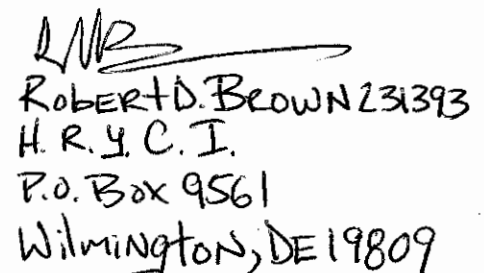 RobERt D. BROWN 231393
H. R. Y. C. I.
P.O. Box 9561
WilmiNgtoN, DE 19809